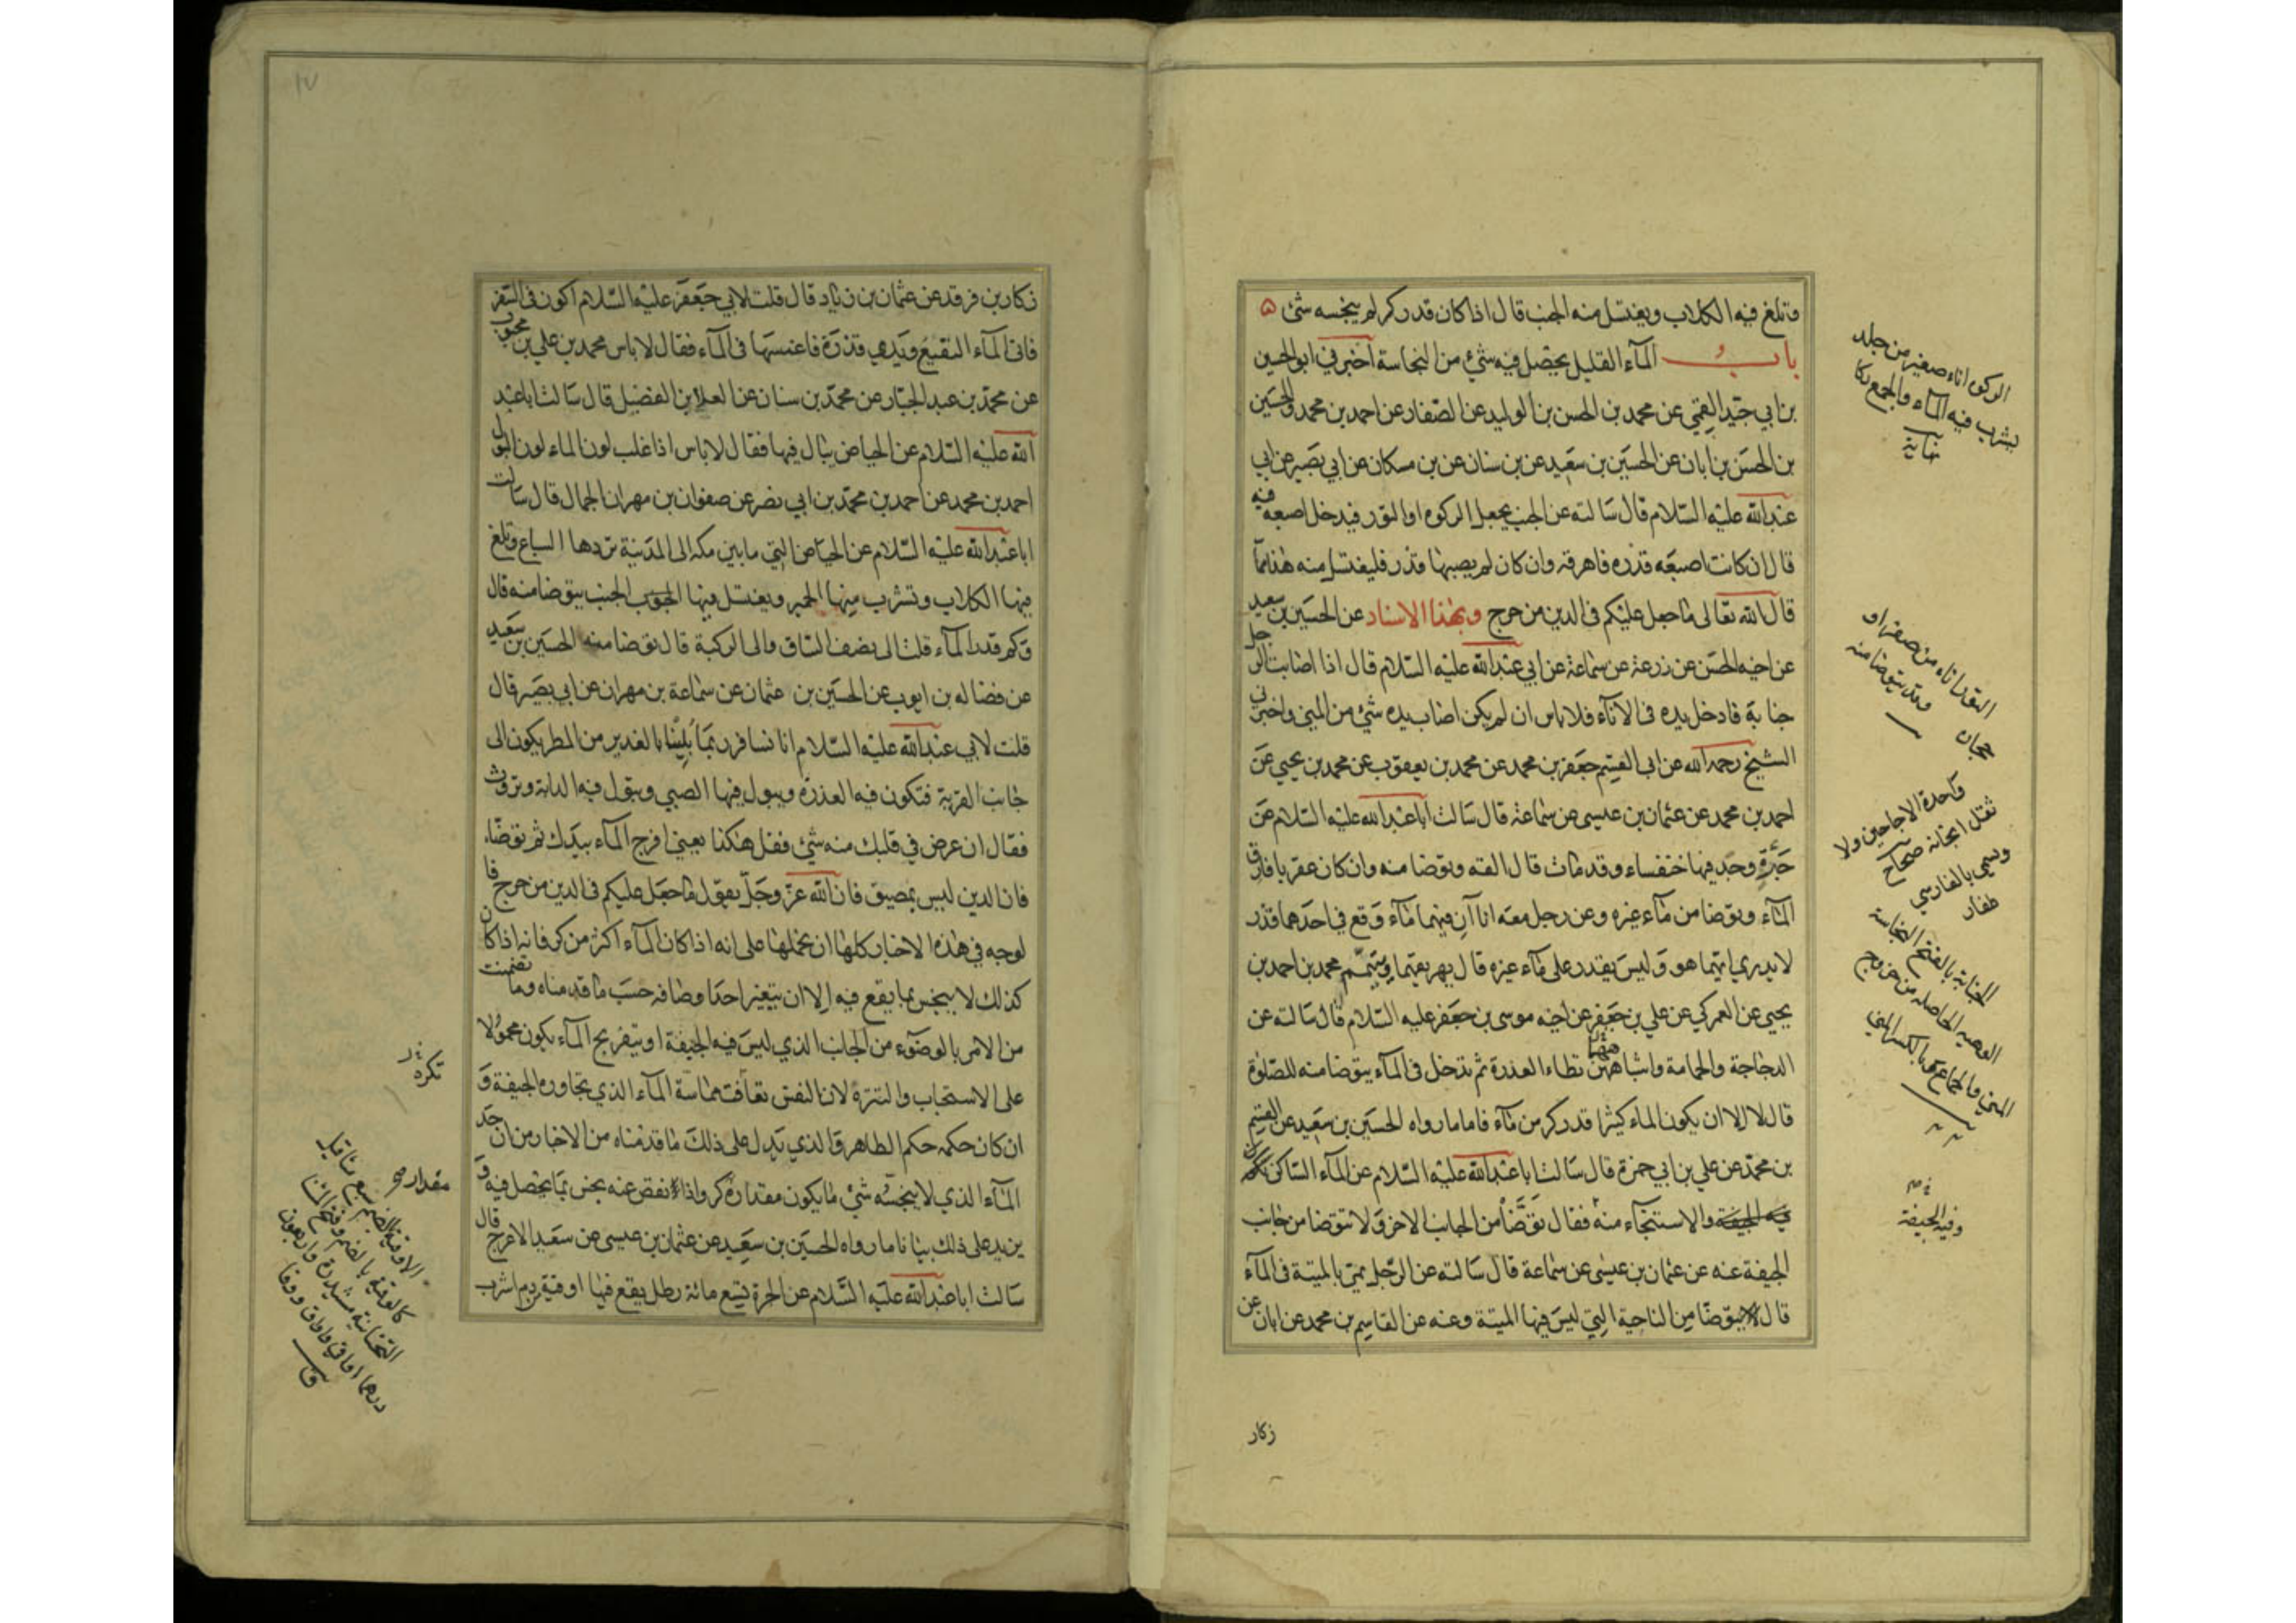 وتلغ فيه الكلاب ويغتسل منه الجنب قال اذا كان قدر كر لم ينجسه شئ ۵
باب الماء القليل يحصل فيه شئ من النجاسة اخبرني ابو الحسين
بن ابي جيد القمي عن محمد بن الحسن بن الوليد عن الصفار عن احمد بن محمد والحسين
بن الحسن بن ابان عن الحسين بن سعيد عن بن سنان عن بن مسكان عن ابي بصير عن ابي
عبد الله عليه السلام قال سالته عن الجنب يجعل الركوه او التور فيدخل اصبعه فيه
قال ان كانت اصبعه قذره فاهرقه وان كان لم يصبها قذر فليغتسل منه هذا مما
قال الله تعالى ما جعل عليكم فى الدين من حرج وبهذا الاسناد عن الحسين بن سعيد
عن اخيه الحسن عن زرعة عن سماعة عن ابي عبد الله عليه السلام قال اذا اصابت الرجل
جنابة فادخل يده فى الاناء فلا باس ان لم يكن اصاب يده شئ من المني واخبرني
الشيخ رحمه الله عن ابى القسم جعفر بن محمد عن محمد بن يعقوب عن محمد بن يحيى عن
احمد بن محمد عن عثمان بن عيسى عن سماعة قال سالت ابا عبد الله عليه السلام عن
جرة وجد فيها خنفساء وقد مات قال القه وتوضا منه وان كان عقربا فارق
الماء وتوضا من ماء غيره وعن رجل معه اناآن فيهما ماء وقع في احدهما قذر
لا يدري ايهما هو وليس يقدر على ماء غيره قال يهريقهما ويتيمم محمد بن احمد بن
يحيى عن العمركي عن علي بن جعفر عن اخيه موسى بن جعفر عليه السلام قال سالته عن
الدجاجة والحمامة واشباههن تطاء العذرة ثم تدخل فى الماء يتوضا منه للصلوة
قال لا الا ان يكون الماء كثيرا قدر كر من ماء فاما ما رواه الحسين بن سعيد عن القسم
بن محمد عن علي بن ابي حمزة قال سالت ابا عبد الله عليه السلام عن الماء الساكن
فيه الجيفة والاستنجاء منه فقال توضا من الجانب الاخر ولا تتوضا من جانب
الجيفة عنه عن عثمان بن عيسى عن سماعة قال سالته عن الرجل يمر بالميتة فى الماء
قال يتوضا من الناحية التي ليس فيها الميتة وعنه عن القاسم بن محمد عن ابان عن
زكار
الركوة اناء صغير من جلد
يشرب فيه الماء والجمع ركا
نهاية
التور اناء من صفر او
وقد يتوضا منه
واحدة الاجاجين ولا
تقل انجانة صحاح
ويسمى بالفارسي
طغار
الجنابة بالفتح النجاسة
الحاصله من خروج
وفيه الجيفة
۱۷
زكار بن فرقد عن عثمان بن زياد قال قلت لابي جعفر عليه السلام اكون فى السفر
فاتى الماء النقيع ويدي قذرة فاغمسها فى الماء فقال لا باس محمد بن علي بن محبوب
عن محمد بن عبد الجبار عن محمد بن سنان عن العلا بن الفضيل قال سالت ابا عبد
الله عليه السلام عن الحياض يبال فيها فقال لا باس اذا غلب لون الماء لون البول
احمد بن محمد عن احمد بن محمد بن ابي نصر عن صفوان بن مهران الجمال قال سالت
ابا عبد الله عليه السلام عن الحياض التي ما بين مكه الى المدينة تردها السباع وتلغ
فيها الكلاب وتشرب منها الحمير ويغتسل فيها الجنب يتوضا منه قال
وكم قدر الماء قلت الى نصف الساق والى الركبة قال توضا منه الحسين بن سعيد
عن فضاله بن ايوب عن الحسين بن عثمان عن سماعة بن مهران عن ابي بصير قال
قلت لابي عبد الله عليه السلام انا نسافر ربما بلينا بالغدير من المطر يكون الى
جانب القرية فتكون فيه العذرة ويبول فيها الصبي وتبول فيه الدابة وتروث
فقال ان عرض في قلبك منه شئ فقل هكذا يعني افرج الماء بيدك ثم توضاء
فان الدين ليس بمضيق فان الله عز وجل يقول ما جعل عليكم فى الدين من حرج فا
لوجه في هذه الاخبار كلها ان نحملها على انه اذا كان الماء اكثر من كر فانه اذا كان
كذلك لا ينجس بما يقع فيه الا ان يتغير احد اوصافه حسب ما قدمناه وما تضمنت
من الامر بالوضوء من الجانب الذي ليس فيه الجيفة او يتفريج الماء يكون محمولا
على الاستحباب والتنزه لان النفس تعاف مماسة الماء الذي تجاوره الجيفة و
ان كان حكمه حكم الطاهر والذي يدل على ذلك ما قدمناه من الاخبار من ان حد
الماء الذي لا ينجسه شئ ما يكون مقداره كر واذا نقص عنه نجس بما يحصل فيه و
يزيد على ذلك بيانا ما رواه الحسين بن سعيد عن عثمان بن عيسى عن سعيد الاعرج قال
سالت ابا عبد الله عليه السلام عن الجرة تسع مائة رطل يقع فيها اوقية دم اشرب
تكره
مقداره
الاوقية بالضم سبع مثاقيل
كالوقية بالضم وفتح المثناة
التحتانية مشددة واربعون
درهما